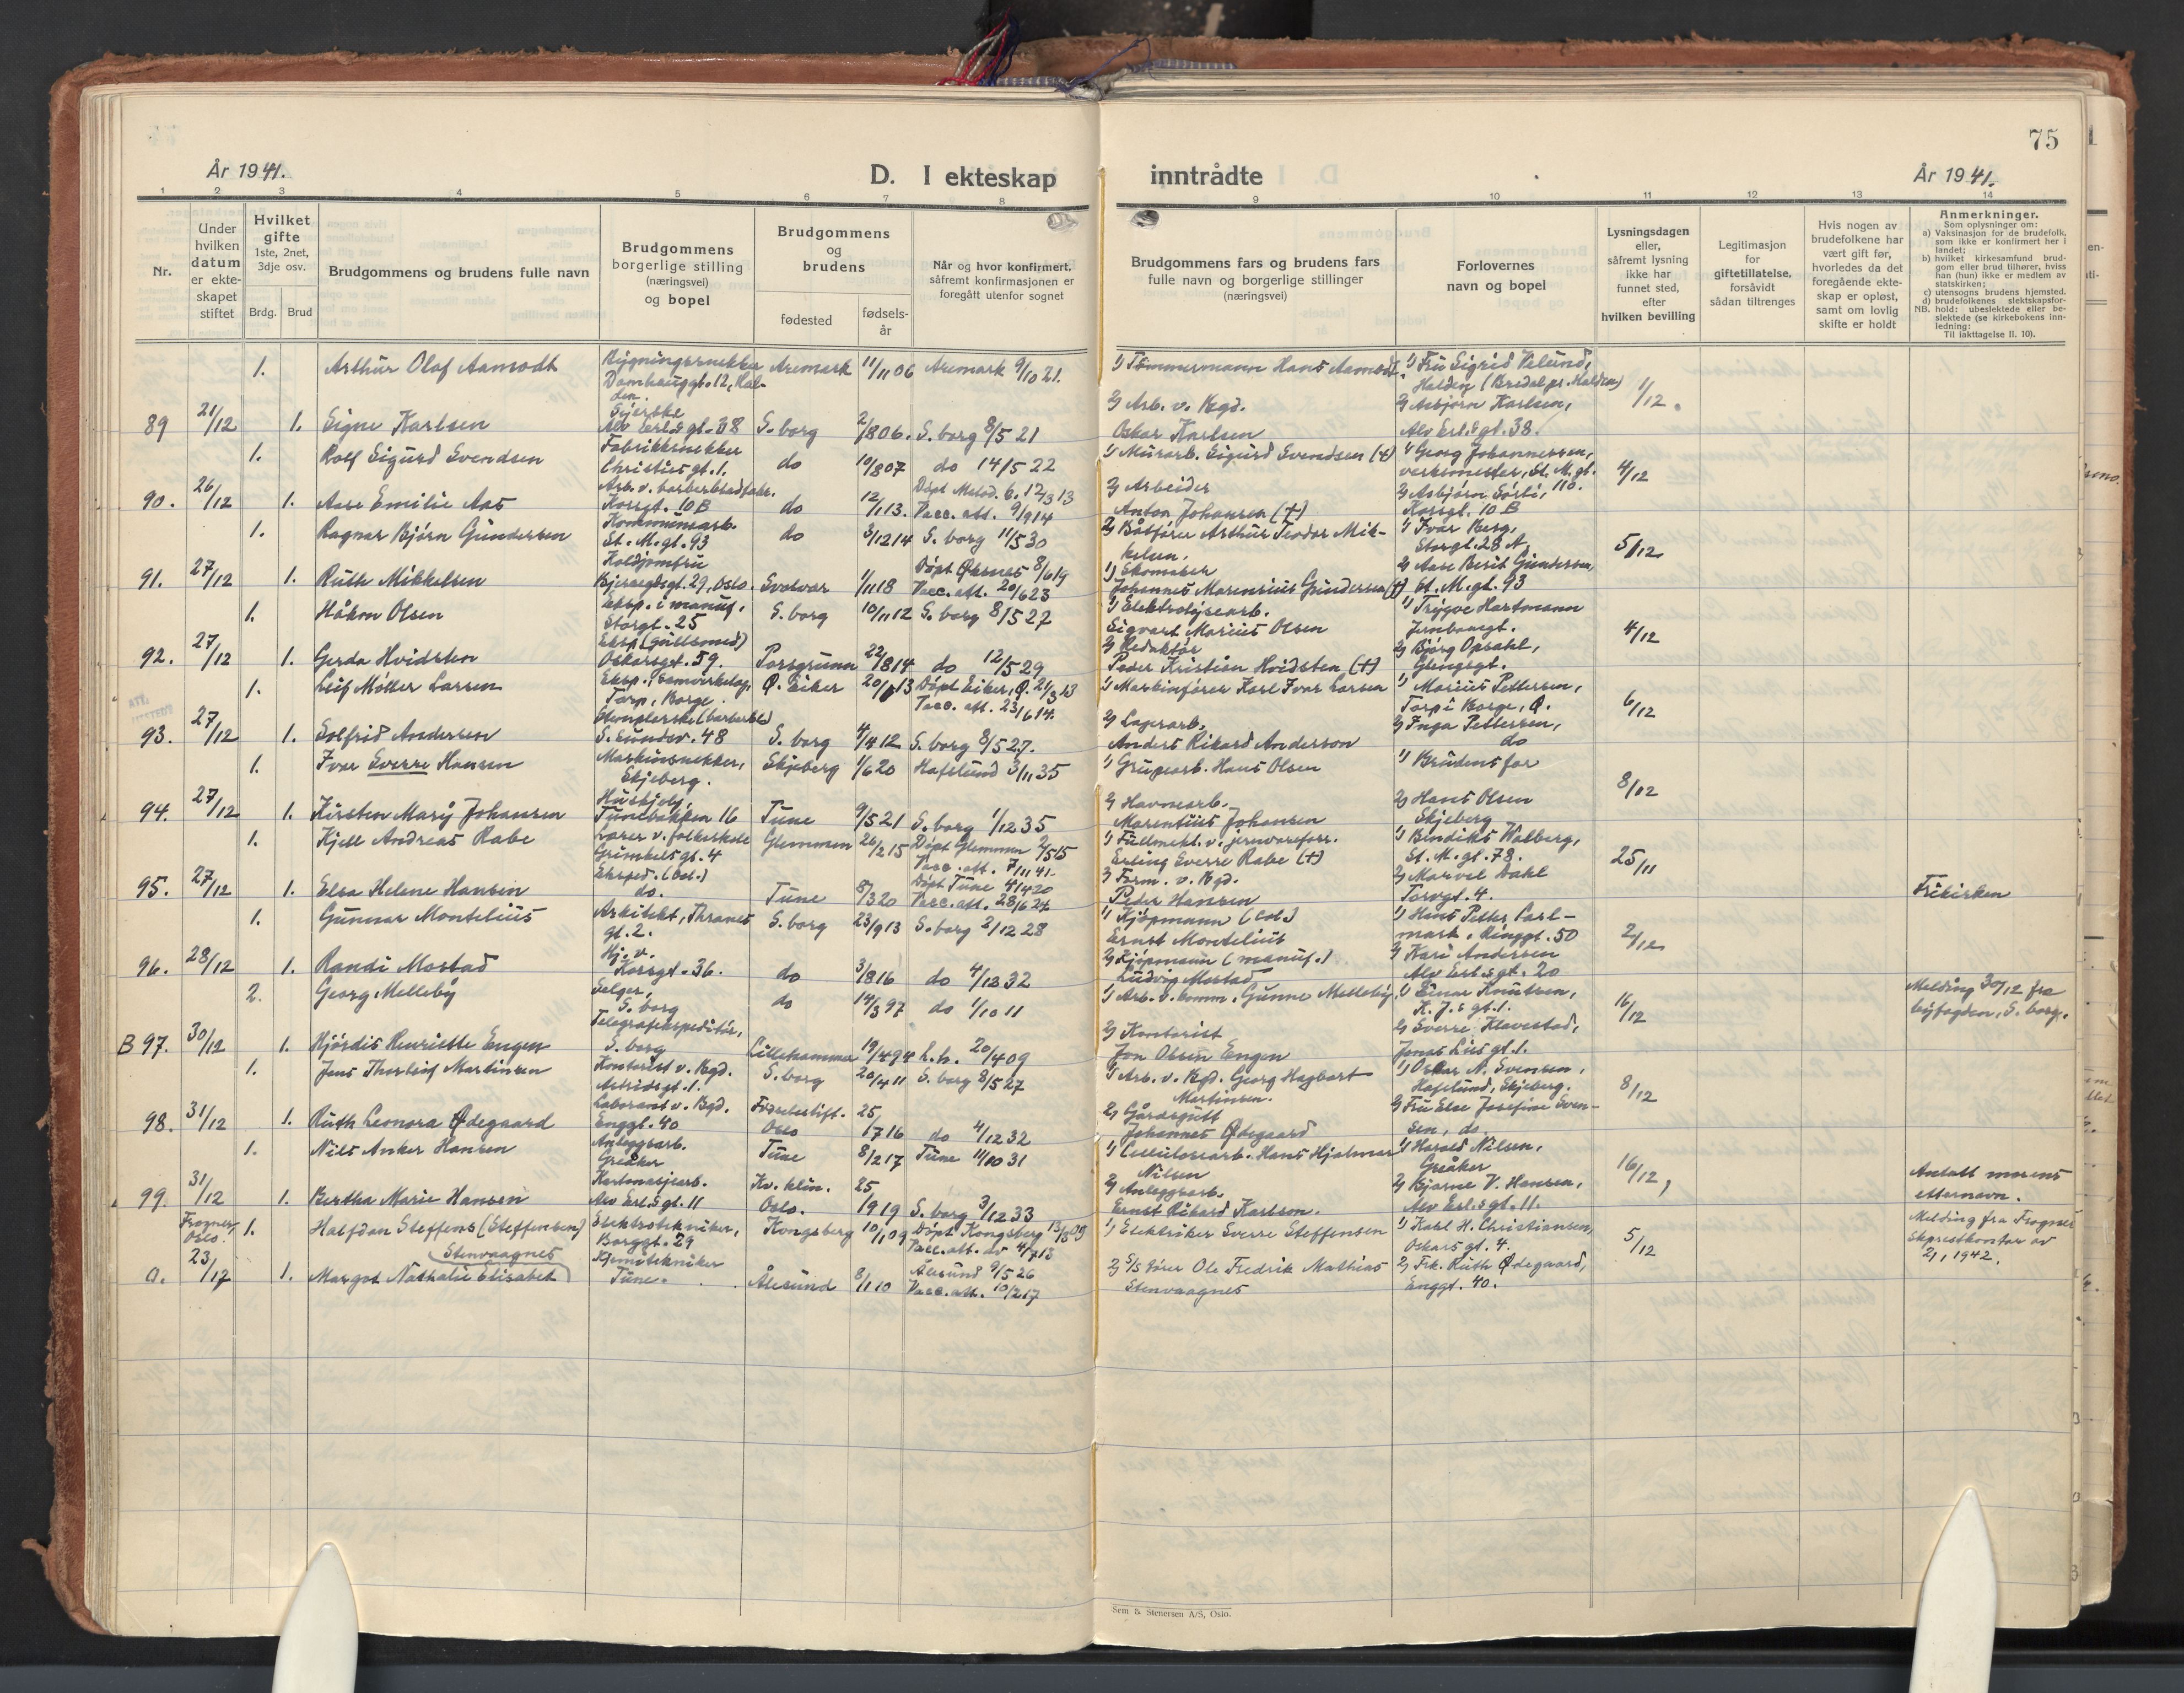 75
År 1941.
D. I ekteskap inntrådte
År 1941.
1 2 3 4 5 6 7 8 9 10 11 12 13 14
Nr.
Under hvilken datum er ekte-skapet stiftet
Hvilket gifte 1ste, 2net, 3dje osv.
Brdg. Brud
Brudgommens og brudens fulle navn
Brudgommens borgerlige stilling (næringsvei) og bopel
Brudgommens og brudens
fødested
fødsels-år
Når og hvor konfirmert, såfremt konfirmasjonen er foregått utenfor sognet
Brudgommens fars og brudens fars fulle navn og borgerlige stillinger (næringsvei)
Forlovernes navn og bopel
Lysningsdagen eller, såfremt lysning ikke har funnet sted, efter hvilken bevilling
Legitimasjon for giftetillatelse, forsåvidt sådan tiltrenges
Hvis nogen av brudefolkene har vært gift før, hvorledes da det foregående ekte-skap er opløst, samt om lovlig skifte er holdt
Anmerkninger.
Som oplysninger om:
a) Vaksinasjon for de brudefolk, som ikke er konfirmert her i landet;
b) hvilket kirkesamfund brud-gom eller brud tilhører, hviss han (hun) ikke er medlem av statskirken;
c) utensogns brudens hjemsted.
d) brudefolkenes slektskapsfor-hold: ubeslektede eller be-slektede (se kirkebokens inn-ledning:
NB.
Til iakttagelse II. 10).
1. Arthur Olaf Aamodt Bygningssnekker Damhauggt. 12, Hal-den. Aremark 11/11 06 Aremark 9/10 21. 1) Tömmermann Hans Aamodt. 1) Fru Sigrid Vilund, Halden (Bredalpr. Halden) 1/12.
89 21/12 1. Signe Karlsen Syerske Alv Erl.s gt. 38 S. borg 2/8 06. S. borg 8/5 21 2) Arb. v. Bgd. Oskar Karlsen 2) Asbjørn Karlsen, Alv Erl.s gt. 38.
1. Rolf Sigurd Svendsen Fabrikksnekker Christies gt. 1. do 10/8 07 do 14/5 22 1) Murarb. Sigurd Svendsen (+) 1) Georg Johannessen, verksmester, St. M. gt. 110. 4/12
90. 26/12 1. Aase Emilie Aas Arb. v. barberbladfabr. Korsgt. 10 B do 12/1 13. Döpt Metod. 6. 12/3 13 Vacc. att. 9/9 14 2) Arbeider Anton Johansen (+) 2) Asbjörn Sörli, Korsgt. 10 B
1. Ragnar Bjørn Gundersen Kommunearb. St. M. gt. 93 do 3/12 14 S. borg 11/5 30 2) Båtförer Arthur Teodor Mik-kelsen. 1) Ivar Berg, Storgt. 28 A. 5/12
91. 27/12 1. Ruth Mikkelsen Koldjomfru Bjerregårdsgt. 29, Oslo. Svolvær 1/11 18 Döpt Öksnes 8/6 19 Vacc. att. 20/6 23 1) Skomaker Johannes Marensius Gundersen (+) 2) Aase Berit Gundersen St. M. gt. 93
1. Håkon Olsen Eksp. i manuf. Storgt. 25 S. borg 10/11 12 S. borg 8/5 27 1) Elektrolysearb. Sigvart Marius Olsen 1) Trygve Hartmann Jernbanegt. 4/12
92. 27/12 1. Gerda Hvidsten Eksp. (gullsmed) Oskarsgt. 59. Porsgrunn 22/8 14 do 12/5 29 2) Redaktör Peder Kristian Hvidsten (+) 2) Bjørg Opsahl, Glengsgt.
1. Leif Møller Larsen Eksp. i samvirkelag, Torp, Borge. Ø. Eiker 20/1 13 Döpt Eiker, Ø. 21/3 13 Vacc. att. 23/6 14. 1) Maskinförer Karl Ivar Larsen 1) Marius Pettersen, Torp i Borge, Ø. 6/12
93. 27/12 1. Solfrid Andersen Stemplerske (barberbl.) S. Sundsv. 48 S. borg 4/4 12 S. borg 8/5 27. 2) Lagerarb. Anders Rikard Anderson 2) Inga Pettersen, do
1. Ivar Sverre Hansen Maskinsnekker, Skjeberg. Skjeberg 1/6 20 Hafslund 3/11 35 1) Grupearb. Hans Olsen 1) Brudens far 8/12
94. 27/12 1. Kirsten Mary Johansen Hushjelp, Tunebakken 16 Tune 9/5 21 S. borg 1/12 35 2) Havnearb. Marentius Johansen 2) Hans Olsen Skjeberg
1. Kjell Andreas Rabe Lærer v. folkeskole Grimkels gt. 4 Glemmen 26/2 15 Döpt Glemmen 2/5 15 Vacc. att. 7/11 41. 1) Fullmekt. v. jernvareforr. Erling Sverre Rabe (+) 1) Bendiks Walberg, St. M. gt. 78. 25/11
95. 27/12 1. Elsa Helene Hansen Eksped. (col.) do. Tune 8/3 20 Döpt Tune 4/4 20 Vacc. att. 28/6 24 2) Form. v. Bgd. Peder Hansen 2) Marvel Dahl Torvgt. 4. Frikirken
1. Gunnar Montelius Arkitekt, Thranes gt. 2. S. borg 23/9 13 S. borg 2/12 28 1) Kjøpmann (col.) Ernst Montelius 1) Hans Petter Carl-mark, Ringgt. 50 2/12
96. 28/12 1. Randi Mostad Hj. v. Korsgt. 36. do 3/8 16 do 4/12 32 2) Kjöpmann (manuf.) Ludvig Mostad 2) Kari Andersen Alv Erl.s gt. 20
2. Georg Melleby Selger, S. borg do 14/3 97 do 1/10 11 1) Arb. v. komm. Gunne Melleby. 1) Einar Knutsen, K. J.s gt. 1. 16/12 Melding 30/12 fra byfogden, S. borg.
B 97. 30/12 1. Hjördis Henriette Engen Telegrafekspeditör, S. borg Lillehammer 19/4 94 L.h. 20/4 09 2) Kontorist Jon Olsen Engen 2) Sverre Klavestad, Jonas Lies gt. 1.
1. Jens Thorleif Martinsen Kontorist v. Bgd. Astridsgt. 1. S. borg 20/4 11 S. borg 8/5 27 1) Arb. v. Bgd. Georg Hagbart Martinsen. 1) Oskar N. Svensen, Hafslund, Skjeberg. 8/12
98. 31/12 1. Ruth Leonora Ødegaard Laborant v. Bgd. Enggt. 40 Födselsstift. Oslo 25/1 16 do 4/12 32 2) Gårdsgutt Johannes Ødegaard 2) Fru Else Josefine Sven-sen, do.
1. Nils Anker Hansen Anleggsarb. Greåker Tune 8/2 17 Tune 11/10 31 1) Cellulosearb. Hans Hjalmar Nilsen 1) Harald Nilsen, Greåker 16/12,
99. 31/12 1. Bertha Marie Hansen Kartonasjearb. Alv Erl.s gt. 11 Kv. klin. Oslo. 25/1 19 S. borg 3/12 33 2) Anleggsarb. Ernst Rikard Karlson. 2) Bjarne V. Hansen, Alv Erl.s gt. 11. Antatt morens etternavn.
Frogner, Oslo. 1. Halfdan Steffens (Steffensen) Elektrotekniker, Borggt. 29 Kongsberg 10/1 09 Döpt Kongsberg 13/3 09 Vacc. att. av 4/7 13 1) Elektriker Sverre Steffensen 1) Karl H. Christiansen, Oskars gt. 4. 5/12 Melding fra Frogner sogneprestkontor av 2/1 1942.
a. 23/12 1. Margot Nathalie Elisabet Stenvaagnes Kjemitekniker Tune. Ålesund 8/1 10 Ålesund 9/5 26 Vacc. att. 10/2 17 2) S/S förer Ole Fredrik Mathias Stenvaagnes 2) Frk. Ruth Ødegaard, Enggt. 40.
Sem & Stenersen A/S, Oslo.